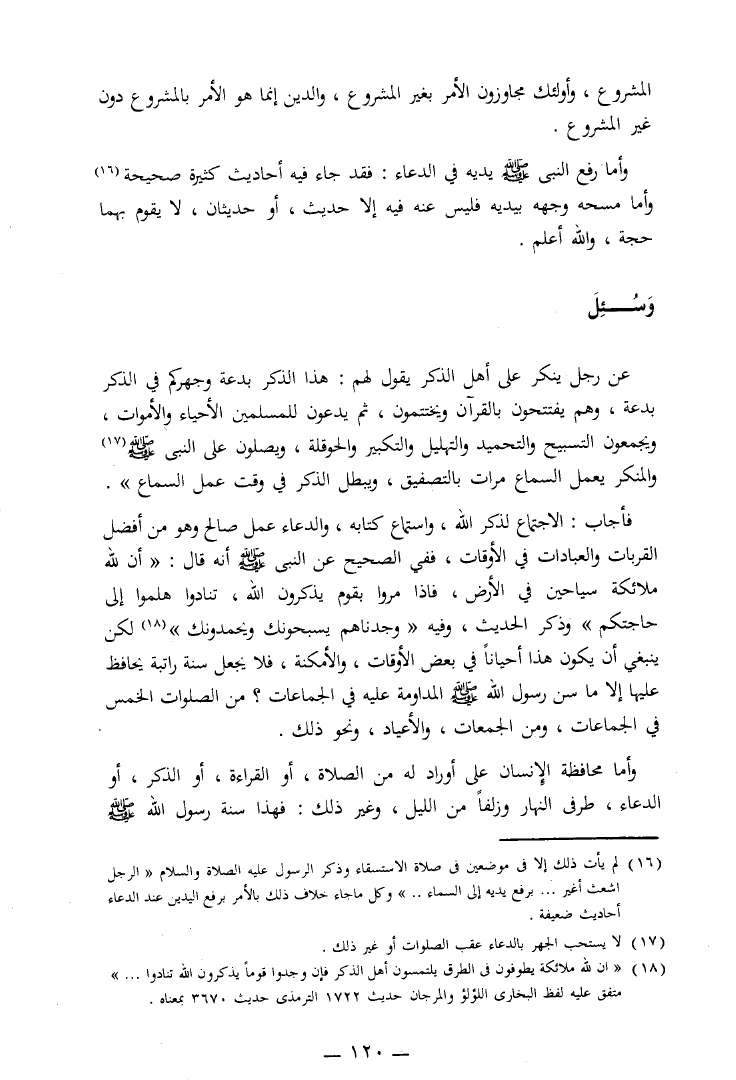 المشروع ، وأولئك مجاوزون الأمر بغير المشروع ، والدين إنما هو الأمر بالمشروع دون
غير المشروع .
وأما رفع النبى ﷺ يديه في الدعاء : فقد جاء فيه أحاديث كثيرة صحيحة (١٦)
وأما مسحه وجهه بيديه فليس عنه فيه إلا حديث ، أو حديثان ، لا يقوم بهما
حجة ، والله أعلم .
وَسُـــئِلَ
عن رجل ينكر على أهل الذكر يقول لهم : هذا الذكر بدعة وجهركم في الذكر
بدعة ، وهم يفتتحون بالقرآن ويختتمون ، ثم يدعون للمسلمين الأحياء والأموات ،
ويجمعون التسبيح والتحميد والتهليل والتكبير والحوقلة ، ويصلون على النبى ﷺ (١٧)
والمنكر يعمل السماع مرات بالتصفيق ، ويبطل الذكر في وقت عمل السماع » .
فأجاب : الاجتماع لذكر الله ، واستماع كتابه ، والدعاء عمل صالح وهو من أفضل
القربات والعبادات في الأوقات ، ففي الصحيح عن النبى ﷺ أنه قال : « أن لله
ملائكة سياحين في الأرض ، فاذا مروا بقوم يذكرون الله ، تنادوا هلموا إلى
حاجتكم » وذكر الحديث ، وفيه « وجدناهم يسبحونك ويحمدونك »(١٨) لكن
ينبغي أن يكون هذا أحياناً في بعض الأوقات ، والأمكنة ، فلا يجعل سنة راتبة يحافظ
عليها إلا ما سن رسول الله ﷺ المداومة عليه في الجماعات ؟ من الصلوات الخمس
في الجماعات ، ومن الجمعات ، والأعياد ، ونحو ذلك .
وأما محافظة الإنسان على أوراد له من الصلاة ، أو القراءة ، أو الذكر ، أو
الدعاء ، طرفى النهار وزلفاً من الليل ، وغير ذلك : فهذا سنة رسول الله ﷺ
(١٦) لم يأت ذلك إلا فى موضعين فى صلاة الاستسقاء وذكر الرسول عليه الصلاة والسلام « الرجل
اشعث أغبر ... يرفع يديه إلى السماء .. » وكل ماجاء خلاف ذلك بالأمر برفع اليدين عند الدعاء
أحاديث ضعيفة .
(١٧) لا يستحب الجهر بالدعاء عقب الصلوات أو غير ذلك .
(١٨) « ان لله ملائكة يطوفون فى الطرق يلتمسون أهل الذكر فإن وجدوا قوماً يذكرون الله تنادوا ... »
متفق عليه لفظ البخارى اللؤلؤ والمرجان حديث ١٧٢٢ الترمذى حديث ٣٦٧٠ بمعناه .
— ١٢٠ —